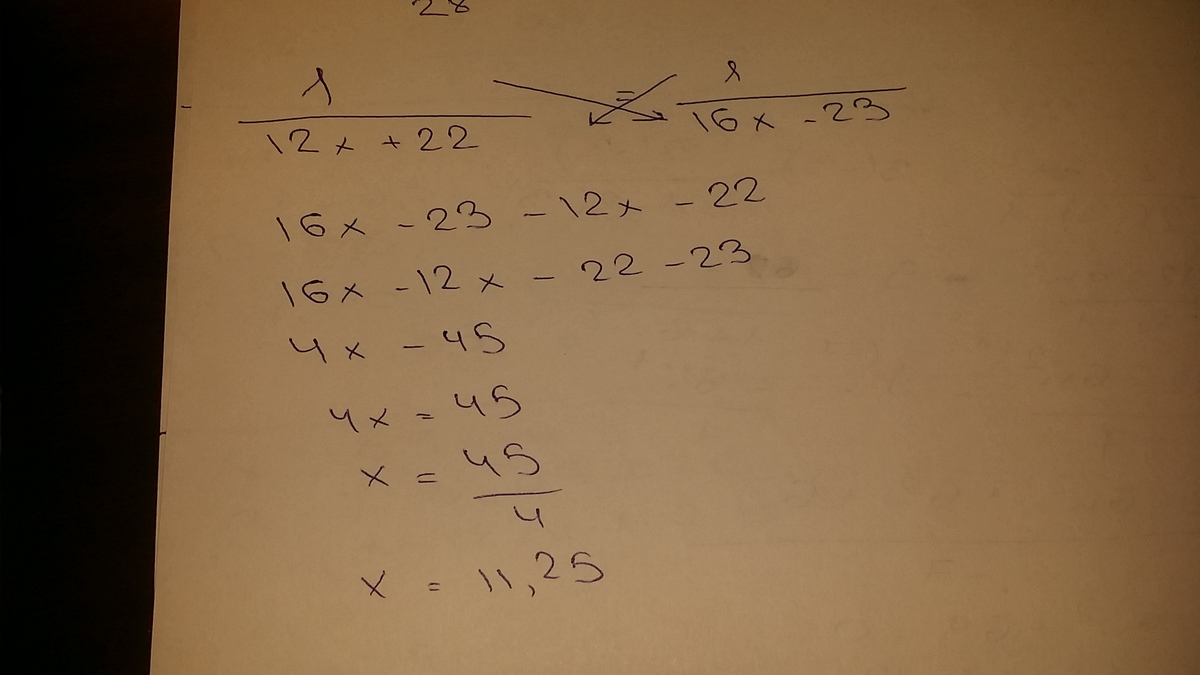 28
1 = 1
12x + 22 16x - 23
16x - 23 - 12x - 22
16x - 12x - 22 - 23
4x - 45
4x = 45
x = 45
4
x = 11,25